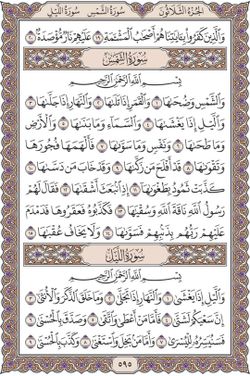 الجزء الثلاثون سورة الشمس سورة الليل
والذين كفروا بآياتنا هم أصحاب المشأمة ١٩ عليهم نار مؤصدة ٢٠
سورة الشمس
بسم الله الرحمن الرحيم
والشمس وضحاها ١ والقمر إذا تلاها ٢ والنهار إذا جلاها ٣
والليل إذا يغشاها ٤ والسماء وما بناها ٥ والأرض
وما طحاها ٦ ونفس وما سواها ٧ فألهمها فجورها
وتقواها ٨ قد أفلح من زكاها ٩ وقد خاب من دساها ١٠
كذبت ثمود بطغواها ١١ إذ انبعث أشقاها ١٢ فقال لهم
رسول الله ناقة الله وسقياها ١٣ فكذبوه فعقروها فدمدم
عليهم ربهم بذنبهم فسواها ١٤ ولا يخاف عقباها ١٥
سورة الليل
بسم الله الرحمن الرحيم
والليل إذا يغشى ١ والنهار إذا تجلى ٢ وما خلق الذكر والأنثى ٣
إن سعيكم لشتى ٤ فأما من أعطى واتقى ٥ وصدق بالحسنى ٦
فسنيسره لليسرى ٧ وأما من بخل واستغنى ٨ وكذب بالحسنى ٩
٥٩٥